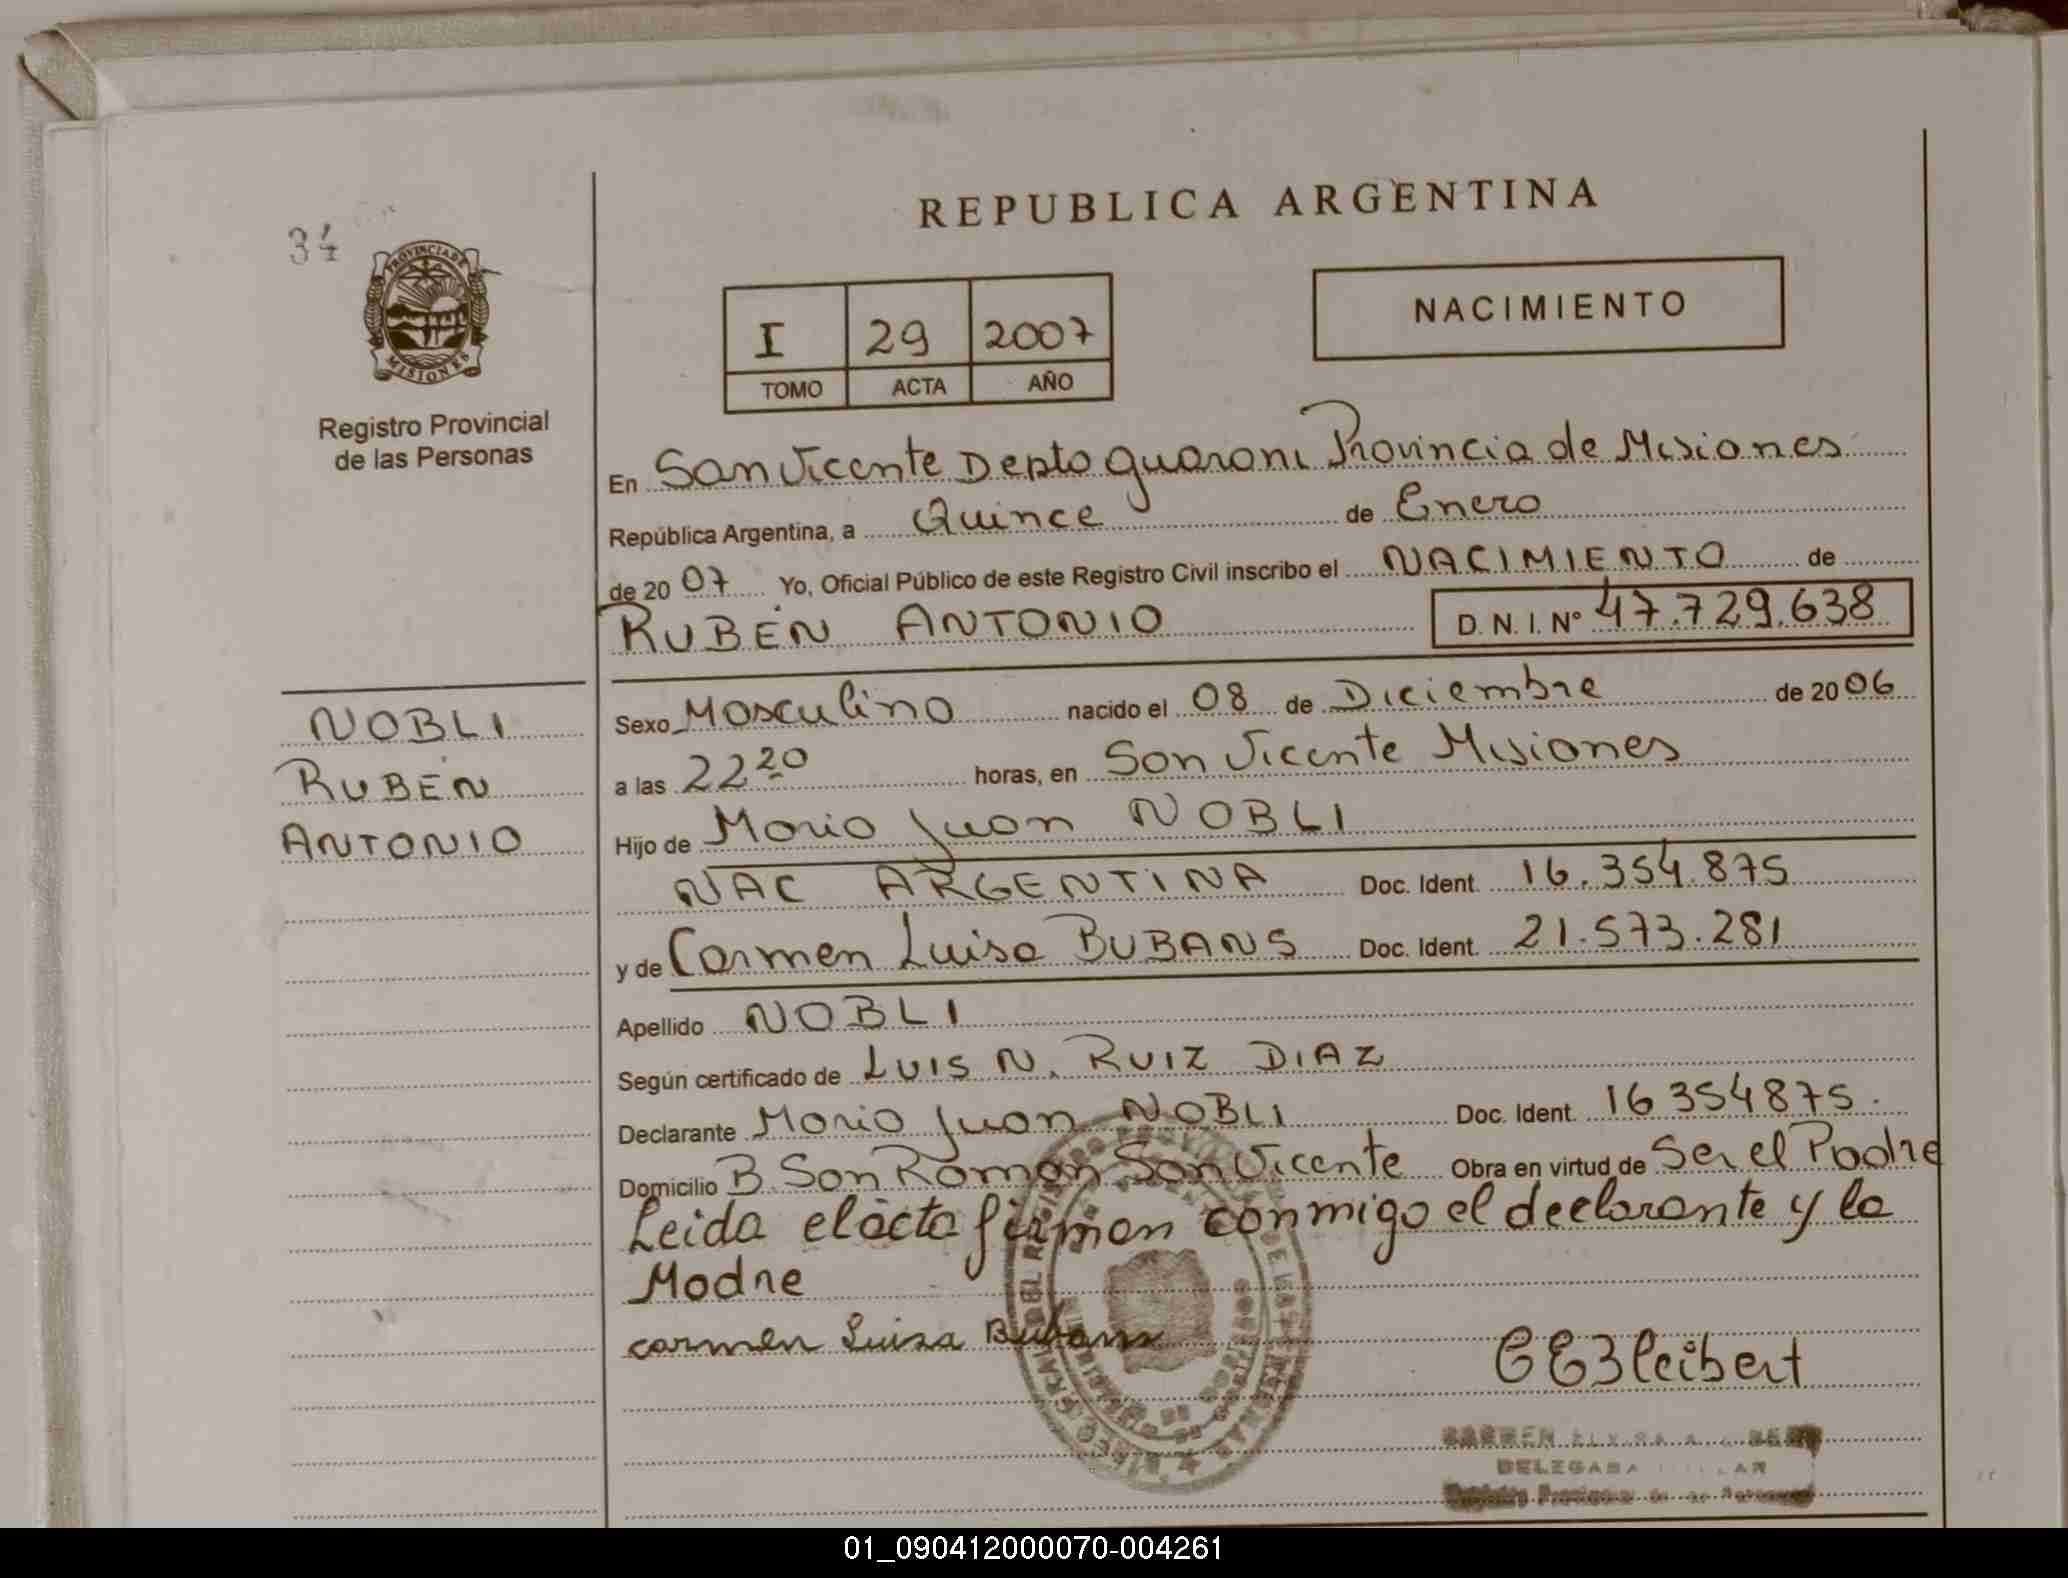 34
PROVINCIA DE
MISIONES
Registro Provincial
de las Personas
REPUBLICA ARGENTINA
I 29 2007
TOMO ACTA AÑO
NACIMIENTO
En San Vicente Depto guarani Provincia de Misiones
República Argentina, a Quince de Enero
de 20 07 Yo, Oficial Público de este Registro Civil inscribo el NACIMIENTO de
RUBÉN ANTONIO D. N. I. Nº 47.729.638
NOBLI
RUBÉN
ANTONIO
Sexo Masculino nacido el 08 de Diciembre de 20 06
a las 22 20 horas, en San Vicente Misiones
Hijo de Mario Juan NOBLI
NAC ARGENTINA Doc. Ident. 16.354.875
y de Carmen Luisa BUBANS Doc. Ident. 21.573.281
Apellido NOBLI
Según certificado de LUIS N. RUIZ DIAZ
Declarante Mario Juan NOBLI Doc. Ident. 16354875.
Domicilio B. San Ramon San Vicente Obra en virtud de Ser el Padre
Leida el acta firman conmigo el declarante y la
Madre
carmen Luisa Bubans
CEBleibert
CARMEN
DELEGADA
01_090412000070-004261